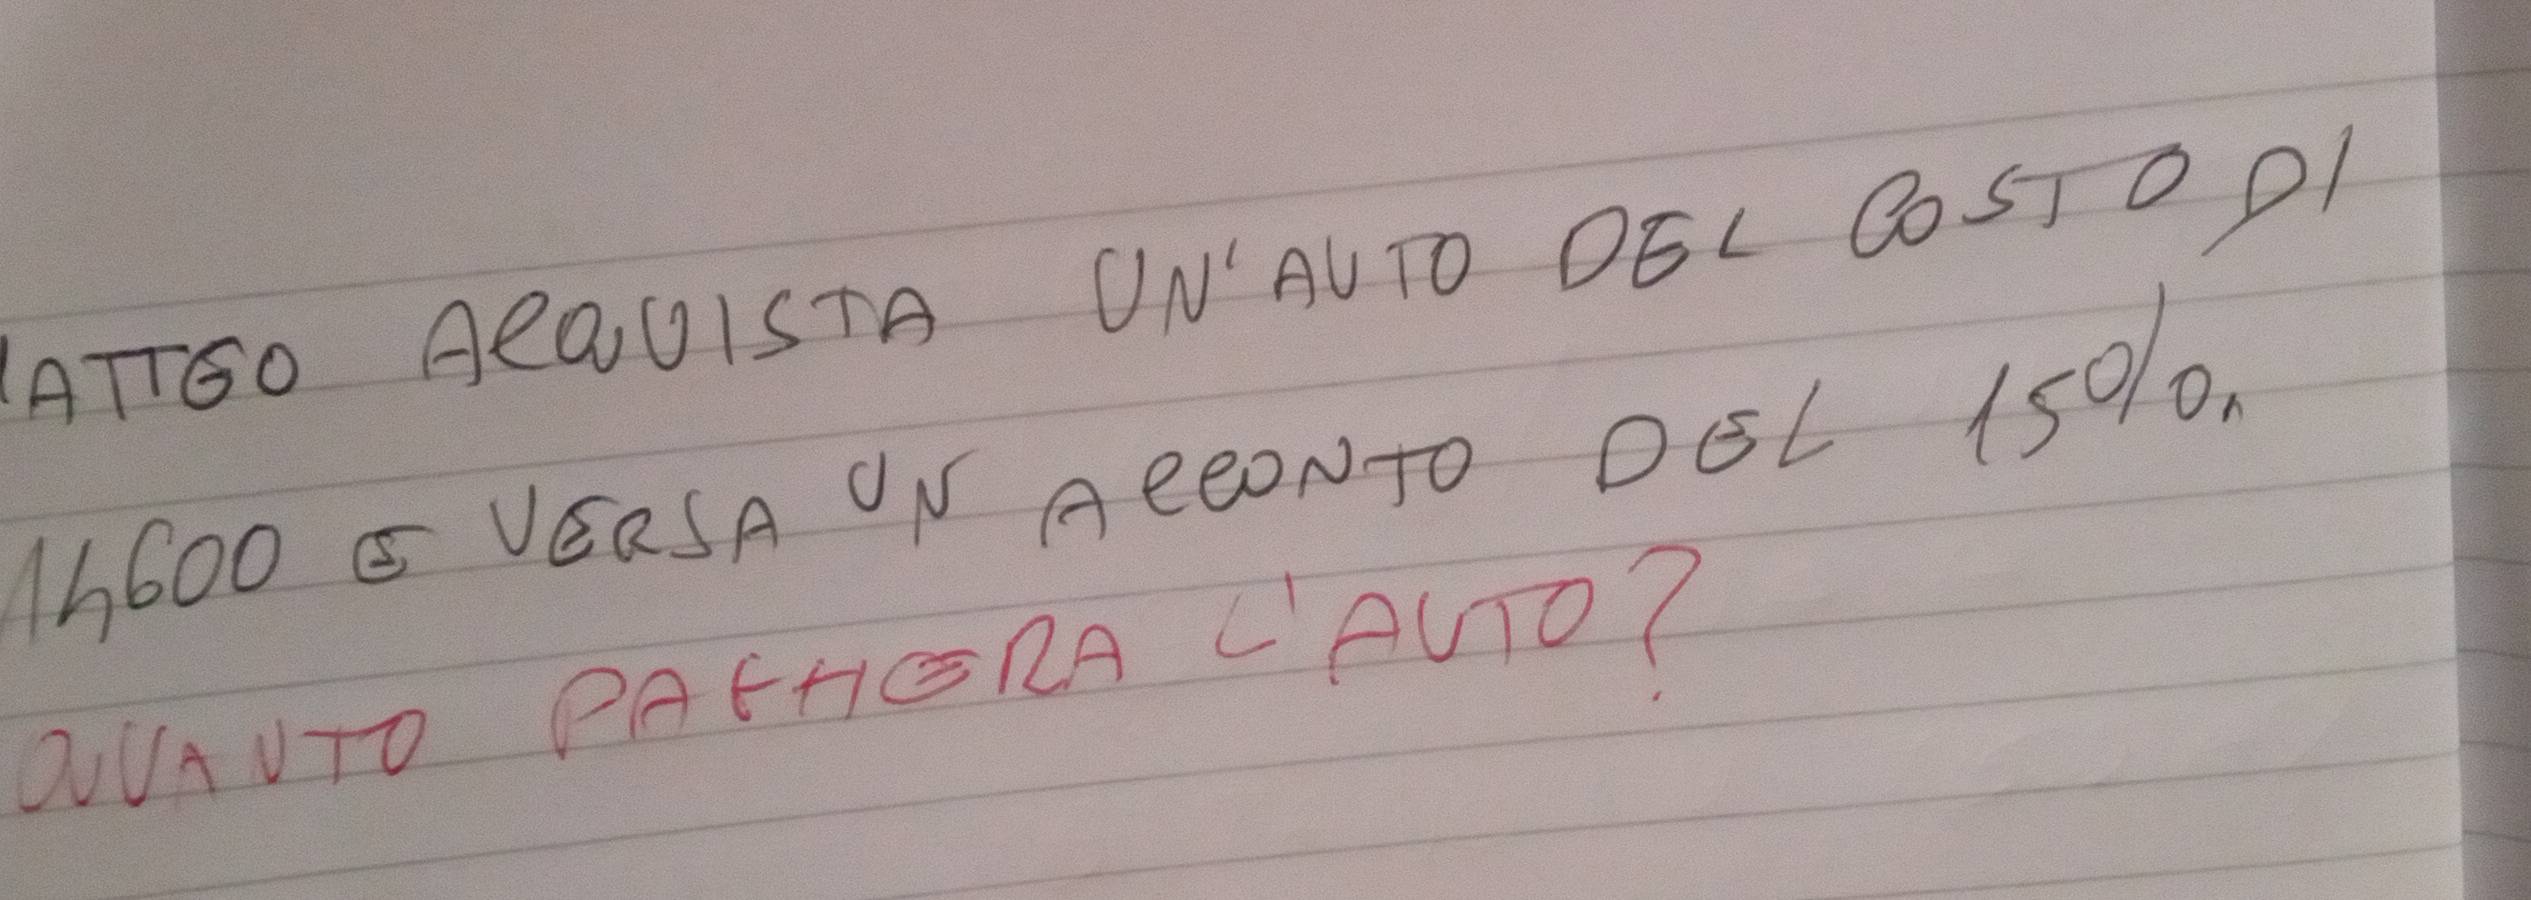 MATTEO ACQUISTA UN'AUTO DEL COSTO DI
14600 E VERSA UN ACCONTO DEL 15%.
QUANTO PAGHERA L'AUTO?